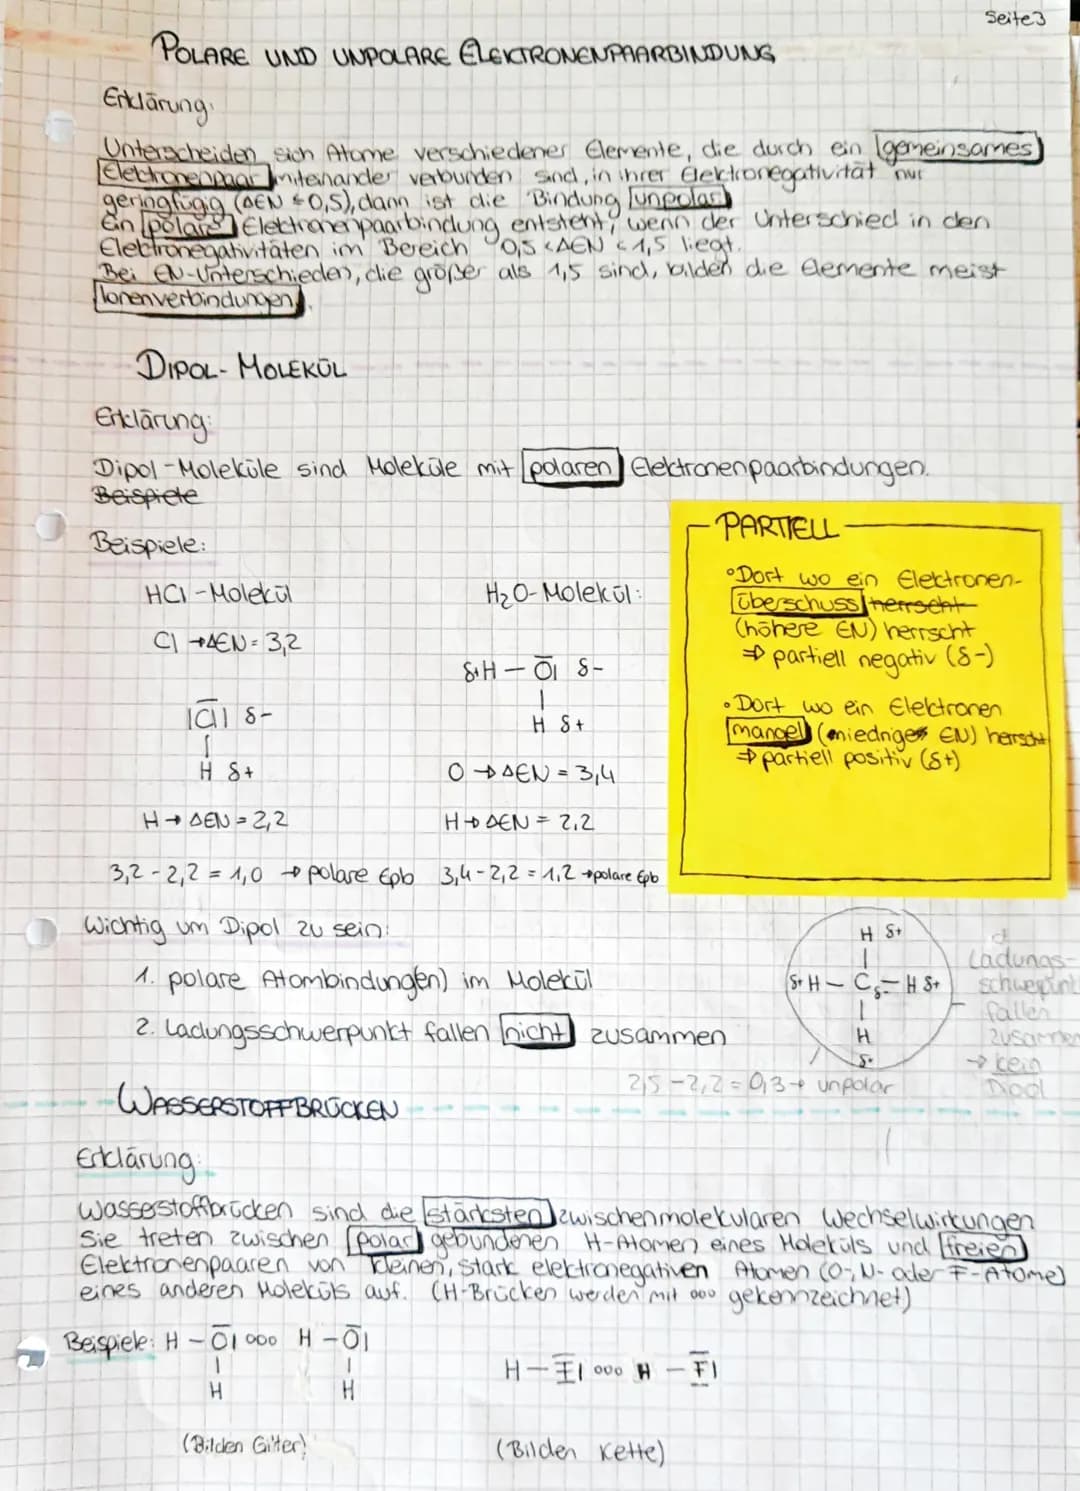 Seite 3
POLARE UND UNPOLARE ELEKTRONENPAARBINDUNG
Erklärung:
Unterscheiden sich Atome verschiedener Elemente, die durch ein gemeinsames
Elektronenpaar miteinander verbunden sind, in ihrer Elektronegativität nur
geringfügig (ΔEN ≤ 0,5), dann ist die Bindung unpolar
Ein polare Elektronenpaarbindung entsteht, wenn der Unterschied in den
Elektronegativitäten im Bereich 0,5 < ΔEN < 1,5 liegt.
Bei EN-Unterschieden, die größer als 1,5 sind, bilden die Elemente meist
Ionenverbindungen.
DIPOL-MOLEKÜL
Erklärung:
Dipol-Moleküle sind Moleküle mit polaren Elektronenpaarbindungen.
Beispiele
Beispiele:
HCl-Molekül
Cl → ΔEN = 3,2
|Cl| δ-
|
H δ+
H → ΔEN = 2,2
3,2 - 2,2 = 1,0 → polare Epb
H₂O-Molekül:
δ+H — O| δ-
|
H δ+
O → ΔEN = 3,4
H → ΔEN = 2,2
3,4 - 2,2 = 1,2 → polare Epb
PARTIELL
• Dort wo ein Elektronen-
überschuss herrscht
(höhere EN) herrscht
⇒ partiell negativ (δ-)
• Dort wo ein Elektronen
mangel (niedriges EN) herrscht
⇒ partiell positiv (δ+)
Wichtig um Dipol zu sein:
1. polare Atombindung(en) im Molekül
2. Ladungsschwerpunkt fallen nicht zusammen
H δ+
|
δ+ H — C δ- — H δ+
|
H
δ+
2,5 - 2,2 = 0,3 → unpolar
Ladungs-
schwerpunkt
fallen
zusammen
→ kein
Dipol
WASSERSTOFFBRÜCKEN
Erklärung:
Wasserstoffbrücken sind die stärksten zwischenmolekularen Wechselwirkungen
Sie treten zwischen polar gebundenen H-Atomen eines Moleküls und freien
Elektronenpaaren von kleinen, stark elektronegativen Atomen (O-, N- oder F-Atome)
eines anderen Moleküls auf. (H-Brücken werden mit ooo gekennzeichnet)
Beispiele: H — O| ooo H — O|
| |
H H
(Bilden Gitter)
H — F| ooo H — F|
(Bilden Kette)